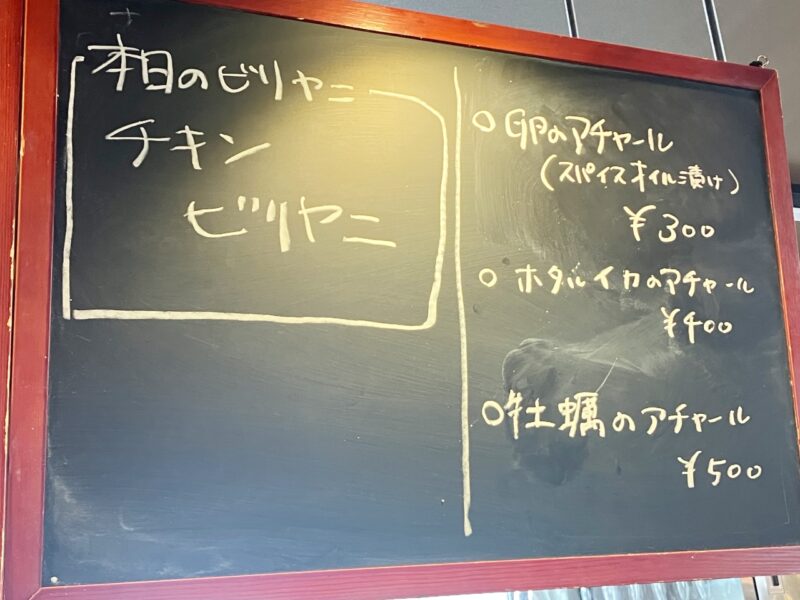 本日のビリヤニ
チキン
ビリヤニ
○ 卵のアチャール
(スパイスオイル漬け)
¥300
○ ホタルイカのアチャール
¥400
○ 牡蠣のアチャール
¥500